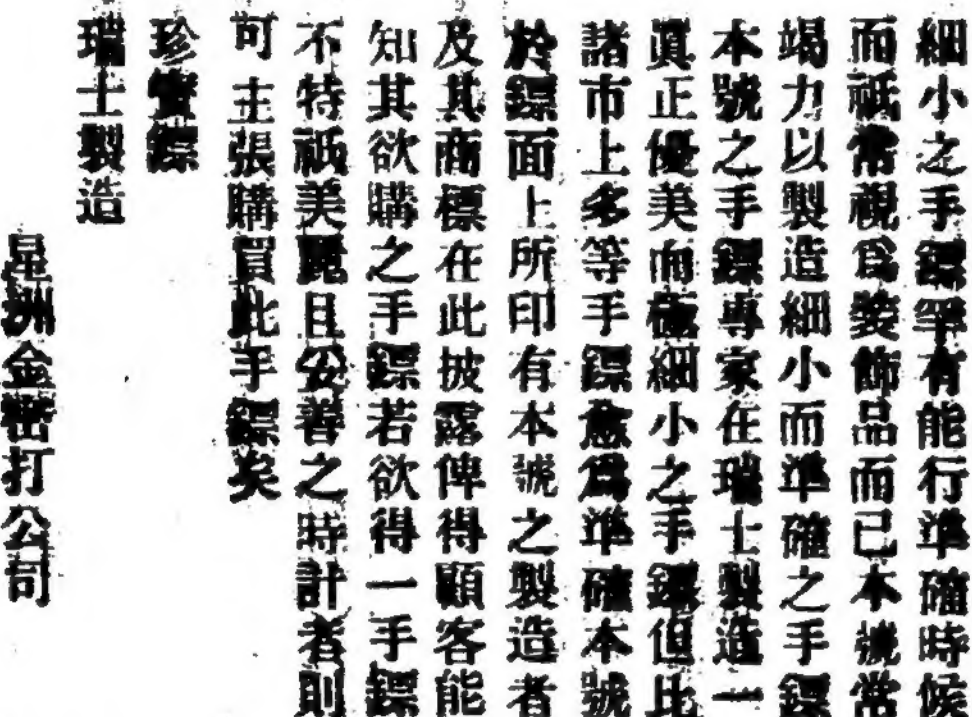 細小之手鏢罕有能行準確時候
而祇常視爲裝飾品而已本號常
竭力以製造細小而準確之手鏢
本號之手鏢專家在瑞士製造一
眞正優美而極細小之手鏢但比
諸市上多等手鏢愈爲準確本號
於鏢面上所印有本號之製造者
及其商標在此披露俾得顧客能
知其欲購之手鏢若欲得一手鏢
不特祇美麗且妥善之時計者則
可主張購買此手鏢矣
珍寶鏢
瑞士製造
星洲金密打公司